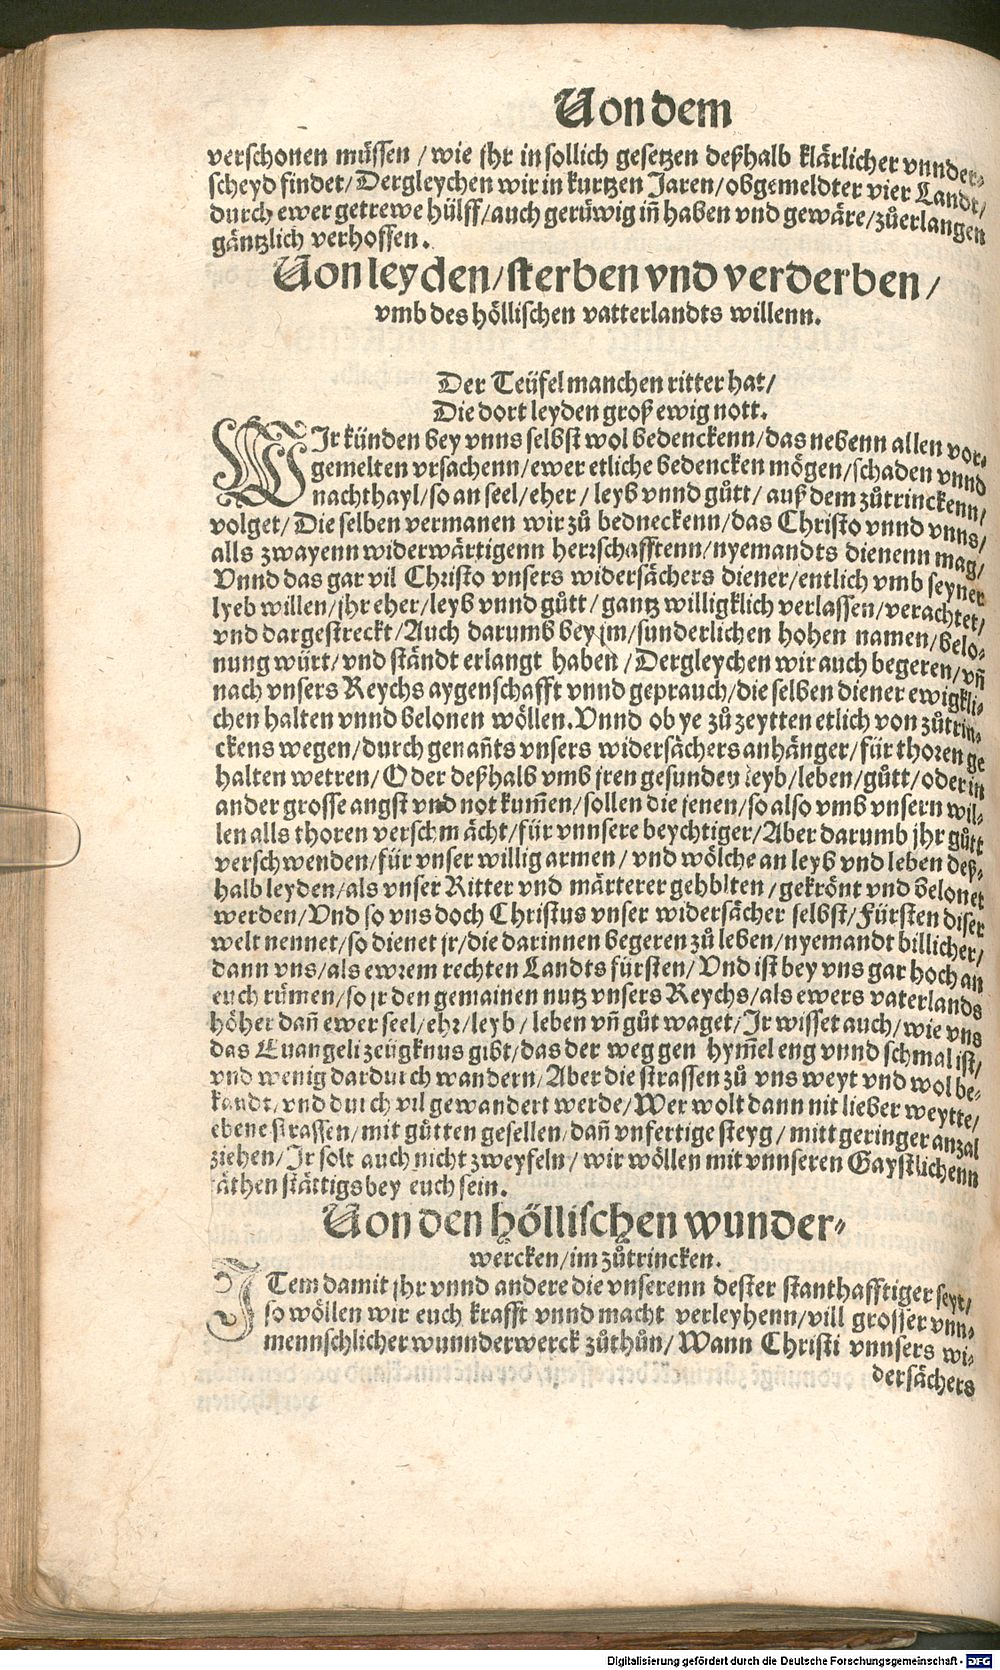 Von dem
verschonen müssen / wie jhr in sollich gesetzen deßhalb klärlicher vnnder⸗
scheyd findet / Dergleychen wir in kurtzen Jaren / obgemeldter vier Landt /
durch ewer getrewe hülff / auch gerüwig iñ haben vnd gewäre / zůerlangen
gäntzlich verhoffen.
Von leyden / sterben vnd verderben /
vmb des höllischen vatterlandts willenn.
Der Teüfel manchen ritter hat /
Die dort leyden groß ewig nott.
WIr künden bey vnns selbst wol bedenckenn / das nebenn allen vor⸗
gemelten vrsachenn / ewer etliche bedencken mögen / schaden vnnd
nachthayl / so an seel / eher / leyb vnnd gůtt / auß dem zůtrinckenn /
volget / Die selben vermanen wir zů bedneckenn / das Christo vnnd vnns /
alls zwayenn widerwärtigenn herrschafftenn / nyemandts dienenn mag /
Vnnd das gar vil Christo vnsers widersächers diener / entlich vmb seyner
lyeb willen / jhr eher / leyb vnnd gůtt / gantz willigklich verlassen / verachtet /
vnd dargestreckt / Auch darumb bey jm / sunderlichen hohen namen / belo⸗
nung würt / vnd ständt erlangt haben / Dergleychen wir auch begeren / vñ
nach vnsers Reychs aygenschafft vnnd geprauch / die selben diener ewigkli⸗
chen halten vnnd belonen wöllen. Vnnd ob ye zů zeytten etlich von zůtrin⸗
ckens wegen / durch genañts vnsers widersächers anhänger / für thoren ge
halten wetren / Oder deßhalb vmb jren gesunden leyb / leben / gůtt / oder in
ander grosse angst vnd not kum̃en / sollen die jenen / so also vmb vnsern wil⸗
len alls thoren verschm ächt / für vnnsere beychtiger / Aber darumb jhr gůtt
verschwenden / für vnser willig armen / vnd wölche an leyb vnd leben deß⸗
halb leyden / als vnser Ritter vnd märterer gehblten / gekrönt vnd belonet
werden / Vnd so vns doch Christus vnser widersächer selbst / Fürsten diser
welt nennet / so dienet jr / die darinnen begeren zů leben / nyemandt billicher /
dann vns / als ewrem rechten Landts fürsten / Vnd ist bey vns gar hoch an
euch rümen / so jr den gemainen nutz vnsers Reychs / als ewers vaterlands
höher dañ ewer seel / ehr / leyb / leben vñ gůt waget / Jr wisset auch / wie vns
das Euangeli zeügknus gibt / das der weg gen hym̃el eng vnnd schmal ist /
vnd wenig dardurch wandern / Aber die strassen zů vns weyt vnd wol be⸗
kandt / vnd durch vil gewandert werde / Wer wolt dann nit lieber weytte /
ebene strassen / mit gůtten gesellen / dañ vnfertige steyg / mitt geringer anzal
ziehen / Jr solt auch nicht zweyfeln / wir wöllen mit vnnseren Gaystlichenn
äthen stättigs bey euch sein.
Von den höllischen wunder⸗
wercken / im zůtrincken.
ITem damit jhr vnnd andere die vnserenn dester stanthafftiger seyt /
so wöllen wir euch krafft vnnd macht verleyhenn / vill grosser vnn⸗
mennschlicher wunnderwerck zůthůn / Wann Christi vnnsers wi⸗
dersächers
Digitalisierung gefördert durch die Deutsche Forschungsgemeinschaft - DFG